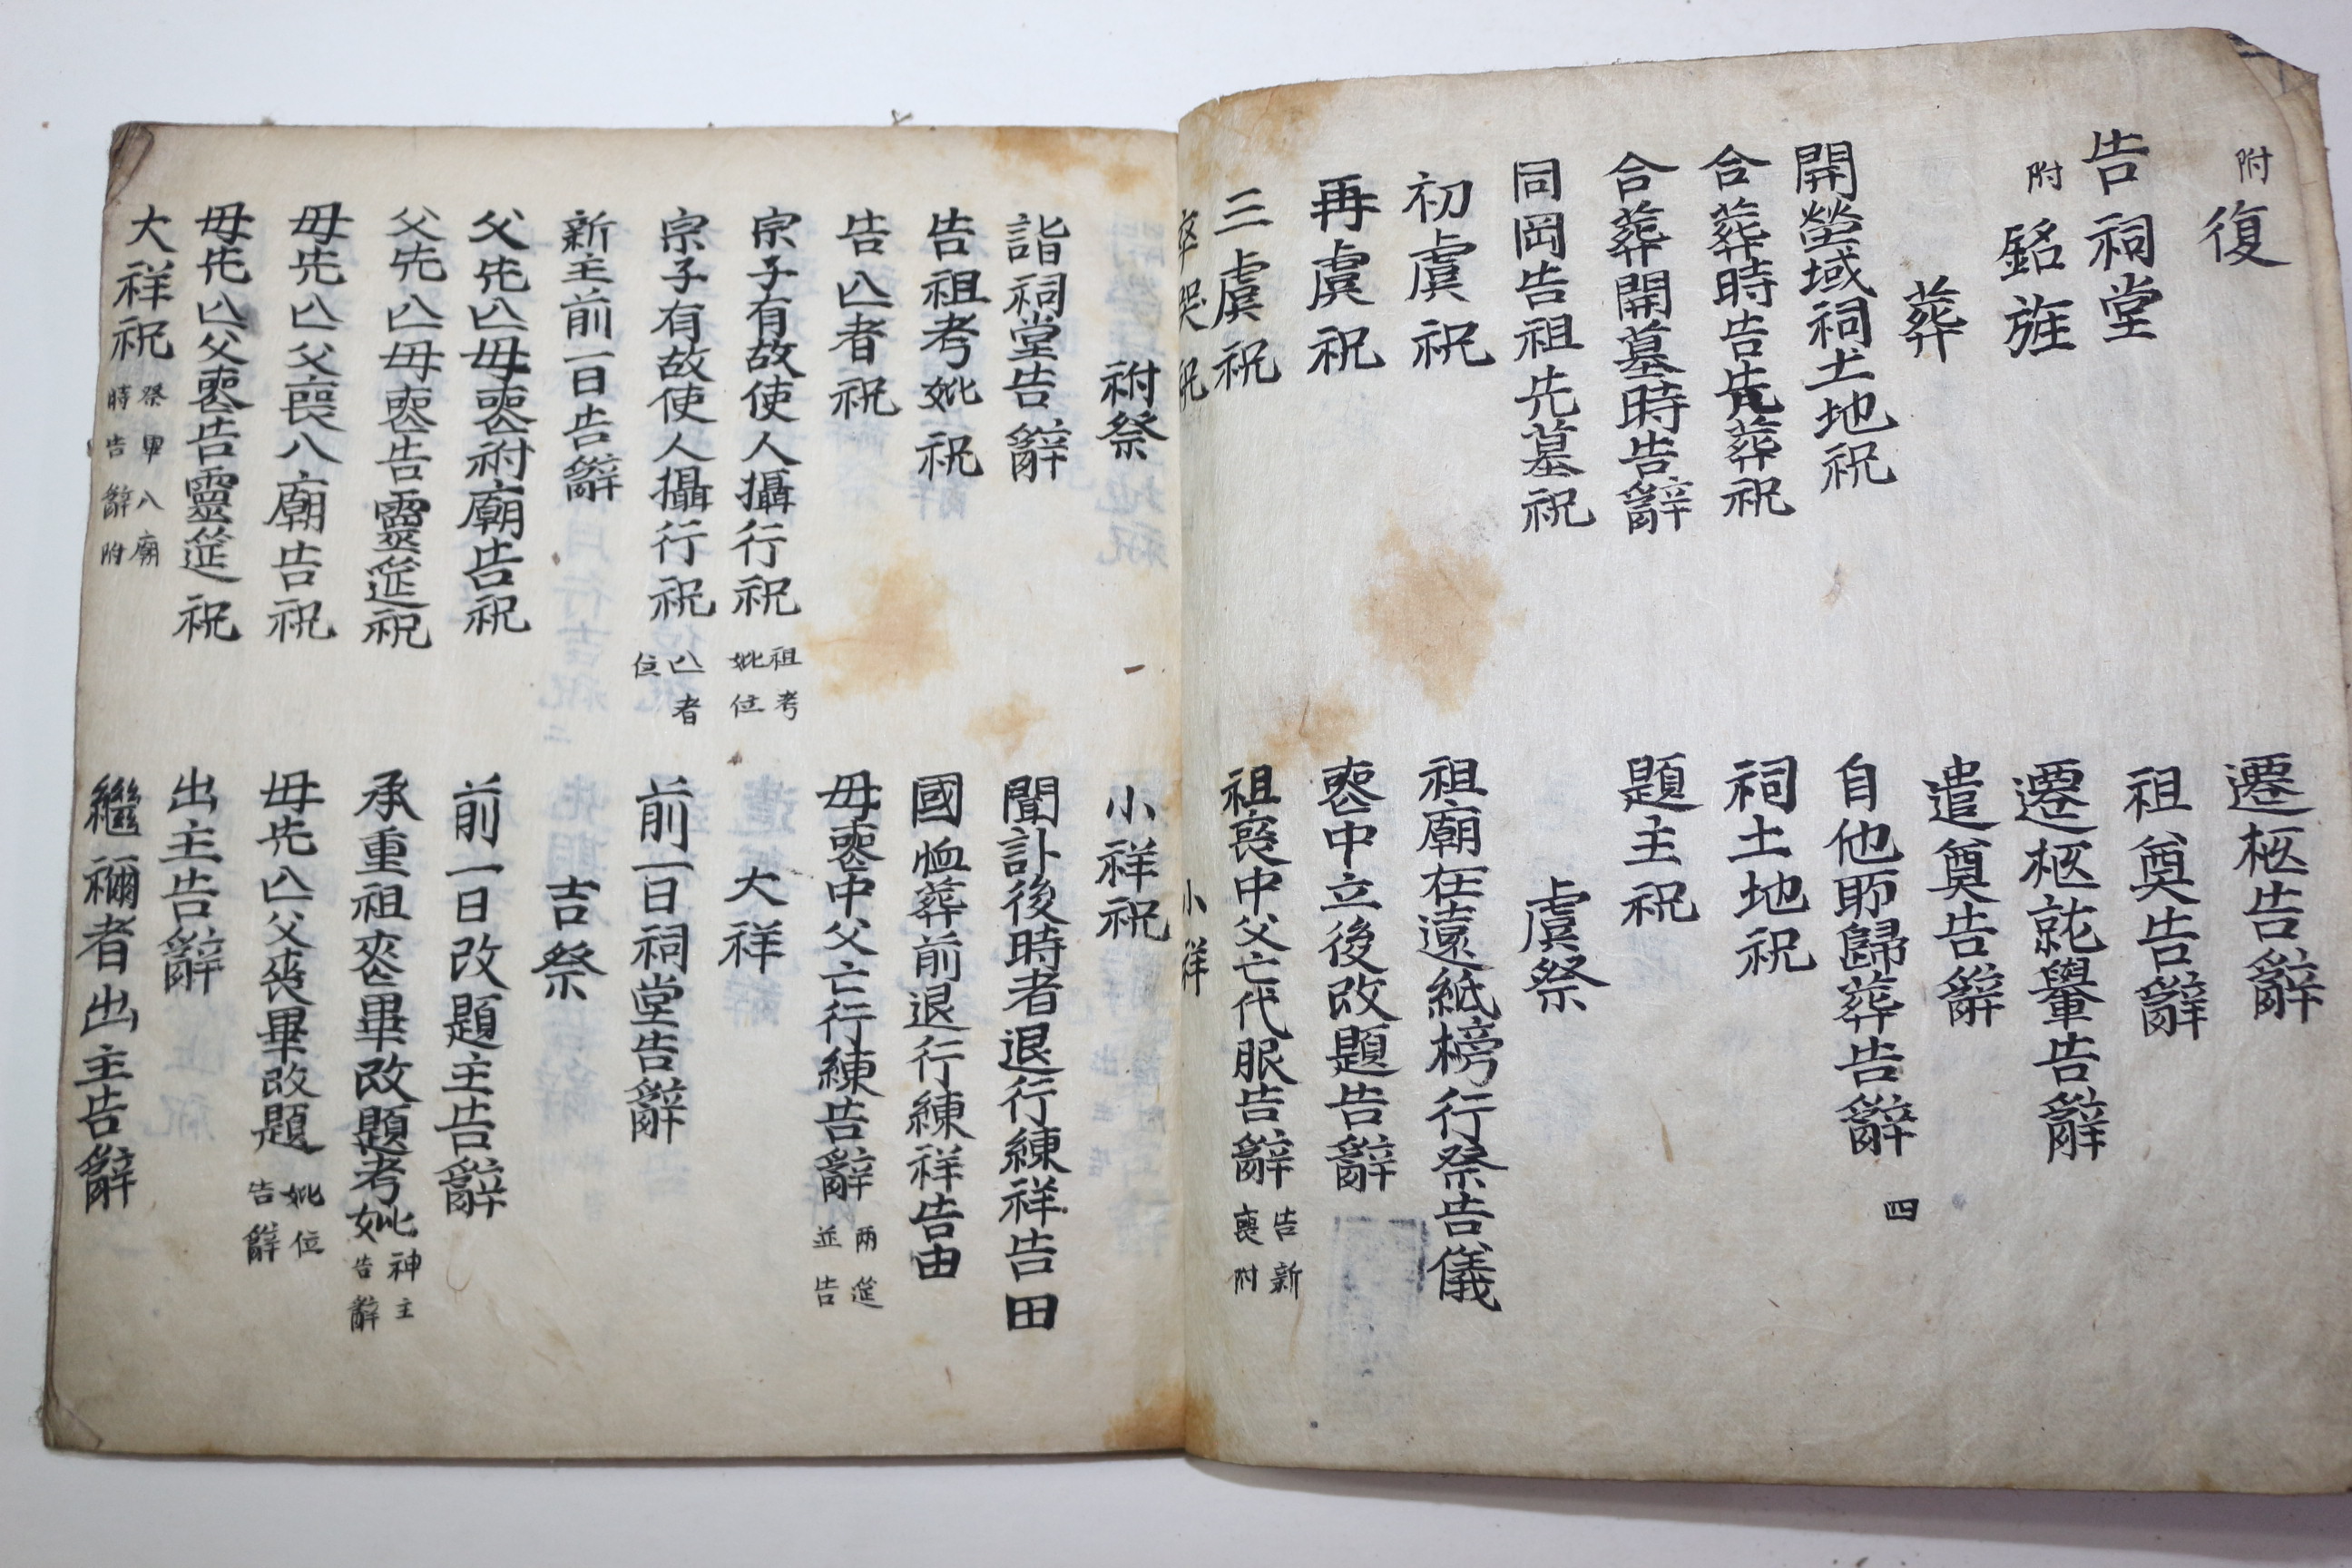 附復
告祠堂
附銘旌
葬
開塋域祠土地祝
合葬時告先葬祝
合葬開墓時告辭
同岡告祖先墓祝
初虞祝
再虞祝
三虞祝
卒哭祝
遷柩告辭
祖奠告辭
遷柩就轝告辭
遣奠告辭
自他所歸葬告辭 四
祠土地祝
題主祝
虞祭
祖廟在遠紙榜行祭告儀
喪中立後改題告辭
祖喪中父亡代服告辭 告新喪附
小祥
祔祭
詣祠堂告辭
告祖考妣祝
告亾者祝
宗子有故使人攝行祝 祖考妣位
宗子有故使人攝行祝 亾者位
新主前一日告辭
父先亾母喪祔廟告祝
父先亾母喪告靈筵祝
母先亾父喪入廟告祝
母先亾父喪告靈筵祝
大祥祝 祭畢入廟時告辭附
小祥祝
聞訃後時者退行練祥告田
國恤葬前退行練祥告由
母喪中父亡行練告辭 兩筵並告
大祥
前一日祠堂告辭
吉祭
前一日改題主告辭
承重祖喪畢改題考妣神主告辭
母先亾父喪畢改題妣位告辭
出主告辭
繼禰者出主告辭